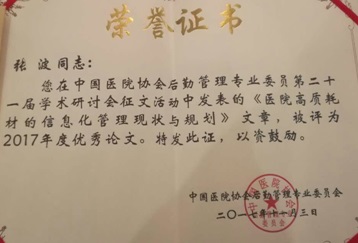 荣誉证书
张波同志：
您在中国医院协会后勤管理专业委员第二十
一届学术研讨会征文活动中发表的《医院高质耗
材的信息化管理现状与规划》文章，被评为
2017年度优秀论文。特发此证，以资鼓励。
中国医院协会后勤管理专业委员会
二〇一七年十一月三日